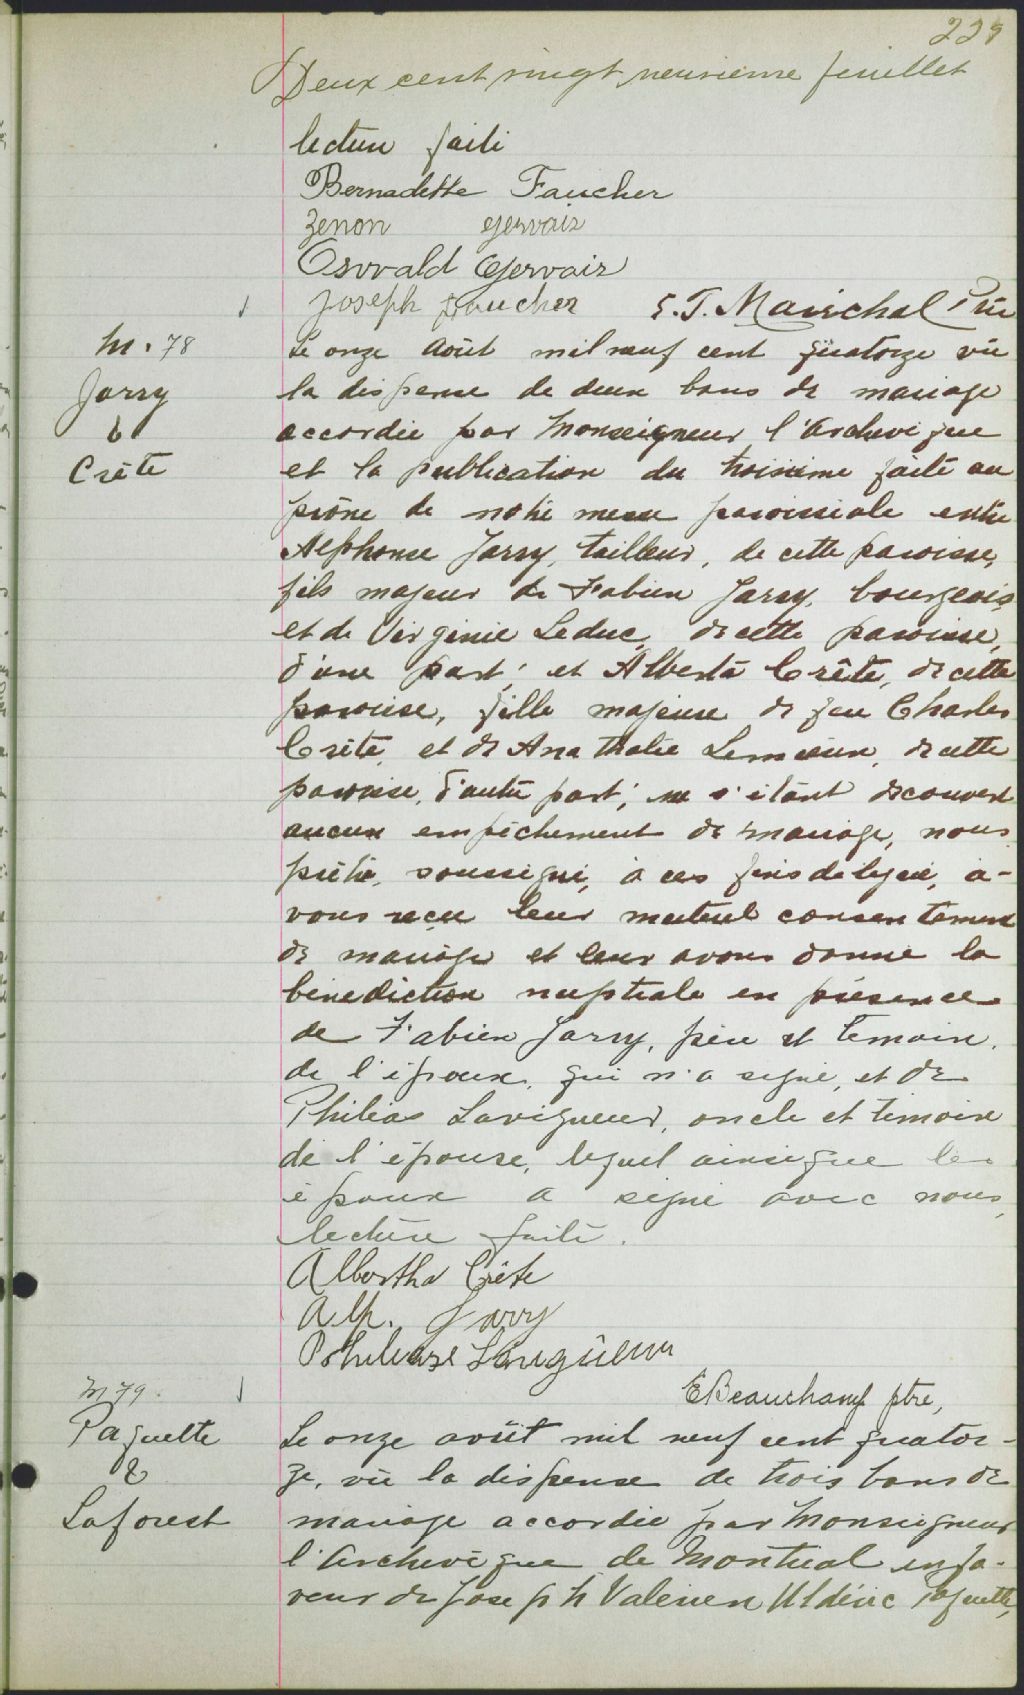 229
Deux cent vingt neuvieme feuillet
lecture faite
Bernadette Faucher
Zenon Gervais
Oswald Gervais
Joseph Faucher
J. Maréchal Ptre
M. 78
Jarry
&
Crête
Le onze Août mil neuf cent quatorze vu
la dispense de deux bans de mariage
accordée par Monseigneur l'Archevêque
et la publication du troisième faite au
prône de notre messe paroissiale entre
Alphonse Jarry, tailleur, de cette paroisse,
fils majeur de Fabien Jarry, bourgeois
et de Virginie Leduc, de cette paroisse,
d'une part; et Alberta Crête, de cette
paroisse, fille majeure de feu Charles
Crête, et de Anathalie Lemieux, de cette
paroisse, d'autre part; ne s'étant découvert
aucun empêchement de mariage, nous
prêtre, soussigné, à ces fins délégué, a-
vons reçu leur mutuel consentement
de mariage et leur avons donné la
bénédiction nuptiale en présence
de Fabien Jarry, père et témoin
de l'époux, qui n'a signé, et de
Philias Lavigueur, oncle et témoin
de l'épouse, lequel ainsi que les
époux a signé avec nous,
lecture faite.
Albertha Crête
Alp. Jarry
E Beauchamp ptre,
M 79.
Paquette
&
Laforest
Le onze août mil neuf cent quator-
ze, vu la dispense de trois bans de
mariage accordée par Monseigneur
l'Archevêque de Montréal en fa-
veur de Joseph Valérien Uldéric Paquette,